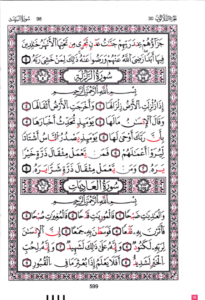 جَزَآؤُهُمْ عِندَ رَبِّهِمْ جَنَّٰتُ عَدْنٍ تَجْرِى مِن تَحْتِهَا ٱلْأَنْهَٰرُ خَٰلِدِينَ
فِيهَآ أَبَدًا رَّضِىَ ٱللَّهُ عَنْهُمْ وَرَضُوا۟ عَنْهُ ذَٰلِكَ لِمَنْ خَشِىَ رَبَّهُۥ ٨
سُورَةُ الزَّلْزَلَةِ
بِسْمِ ٱللَّهِ ٱلرَّحْمَٰنِ ٱلرَّحِيمِ
إِذَا زُلْزِلَتِ ٱلْأَرْضُ زِلْزَالَهَا ١ وَأَخْرَجَتِ ٱلْأَرْضُ أَثْقَالَهَا ٢
وَقَالَ ٱلْإِنسَٰنُ مَا لَهَا ٣ يَوْمَئِذٍ تُحَدِّثُ أَخْبَارَهَا ٤
بِأَنَّ رَبَّكَ أَوْحَىٰ لَهَا ٥ يَوْمَئِذٍ يَصْدُرُ ٱلنَّاسُ أَشْتَاتًا
لِّيُرَوْا۟ أَعْمَٰلَهُمْ ٦ فَمَن يَعْمَلْ مِثْقَالَ ذَرَّةٍ خَيْرًا
يَرَهُۥ ٧ وَمَن يَعْمَلْ مِثْقَالَ ذَرَّةٍ شَرًّا يَرَهُۥ ٨
سُورَةُ العَادِيَاتِ
بِسْمِ ٱللَّهِ ٱلرَّحْمَٰنِ ٱلرَّحِيمِ
وَٱلْعَٰدِيَٰتِ ضَبْحًا ١ فَٱلْمُورِيَٰتِ قَدْحًا ٢ فَٱلْمُغِيرَٰتِ صُبْحًا ٣
فَأَثَرْنَ بِهِۦ نَقْعًا ٤ فَوَسَطْنَ بِهِۦ جَمْعًا ٥ إِنَّ ٱلْإِنسَٰنَ
لِرَبِّهِۦ لَكَنُودٌ ٦ وَإِنَّهُۥ عَلَىٰ ذَٰلِكَ لَشَهِيدٌ ٧ وَإِنَّهُۥ لِحُبِّ
ٱلْخَيْرِ لَشَدِيدٌ ٨ أَفَلَا يَعْلَمُ إِذَا بُعْثِرَ مَا فِى ٱلْقُبُورِ ٩
599